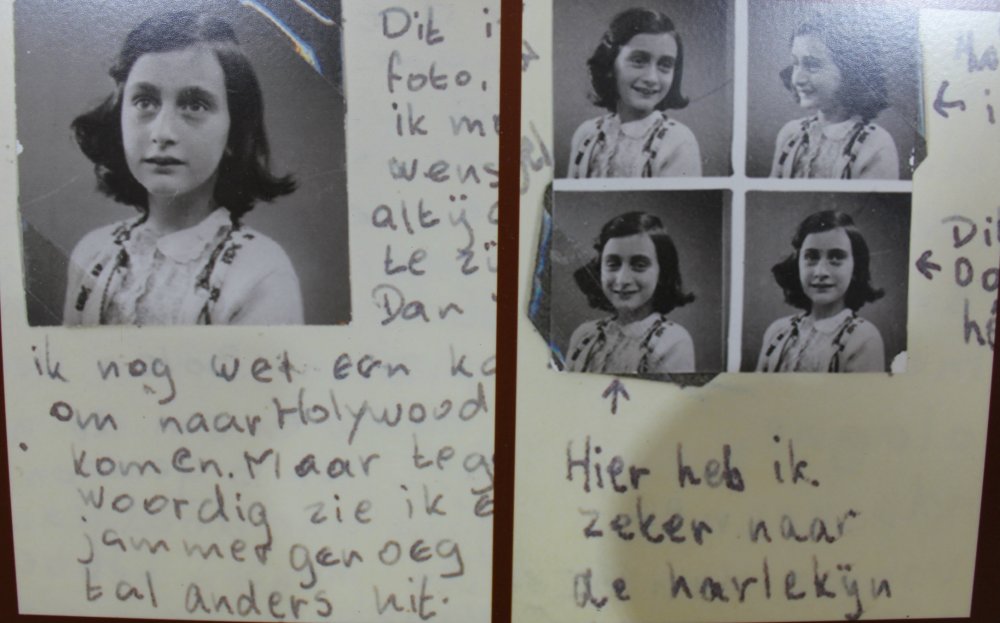 Dit i
foto,
ik m
wens
altÿ
te zÿ
Dan
ik nog wel een ka
om naar Holywood
komen. Maar teg
woordig zie ik e
jammer genoeg
tal anders uit.
Dit
Oo
he
Hier heb ik
zeker naar
de harlekÿn